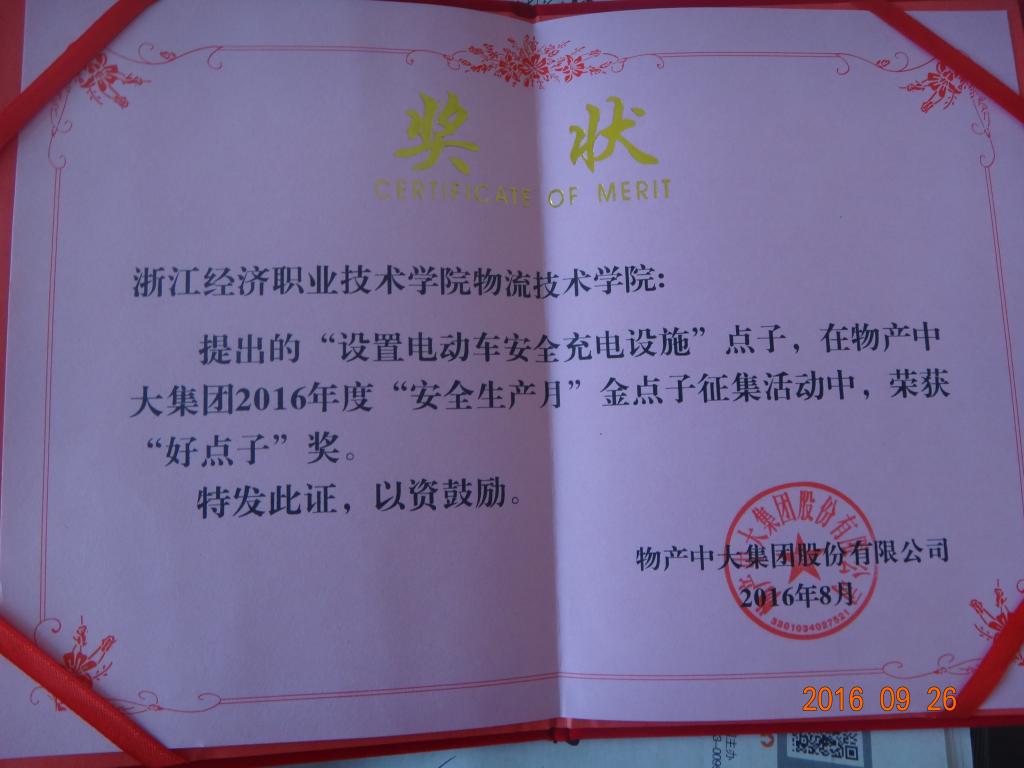 奖 状
CERTIFICATE OF MERIT
浙江经济职业技术学院物流技术学院：
提出的“设置电动车安全充电设施”点子，在物产中
大集团2016年度“安全生产月”金点子征集活动中，荣获
“好点子”奖。
特发此证，以资鼓励。
物产中大集团股份有限公司
2016年8月
物产中大集团股份有限公司
3301034027521
2016 09 26
主办